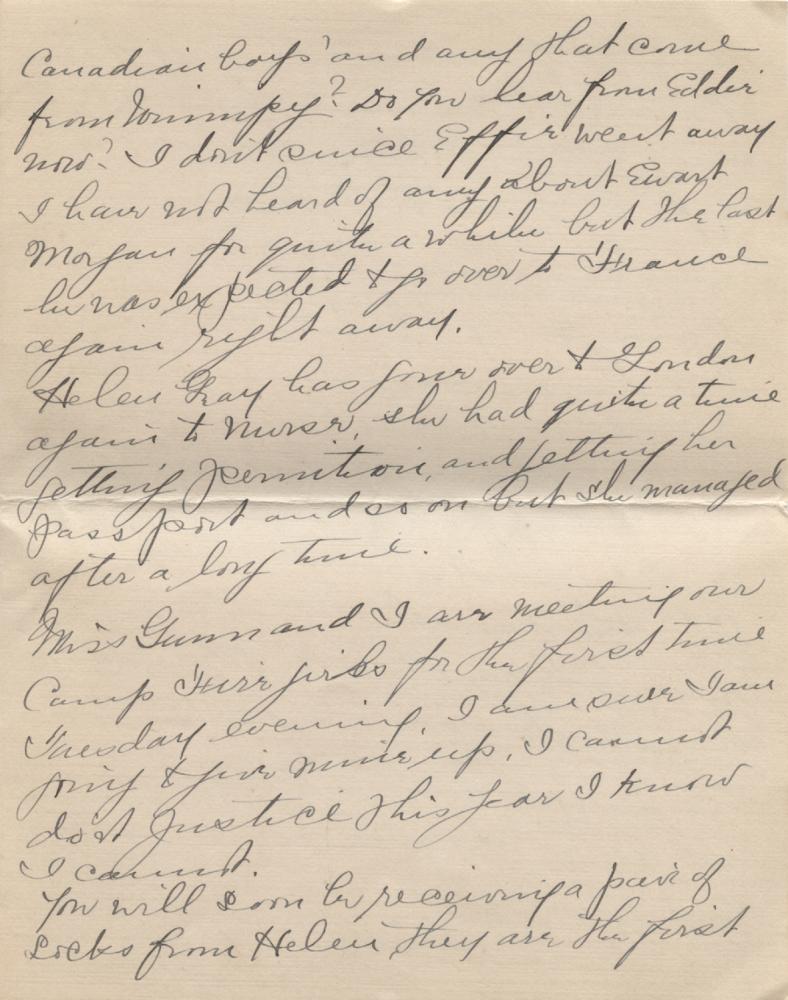 Canadian boys' and any that come
from Winnipeg? Do you hear from Eddie
now? I don't since Effie went away
I have not heard of any about Ewart
Morgan for quite a while but the last
he was expected to go over to France
again right away.
Helen Gray has gone over to London
again to nurse, she had quite a time
getting permition, and getting her
passport and so on but she managed
after a long time.
Miss Gunn and I are meeting our
Camp Fire girls for the first time
Tuesday evening, I am sure I am
going to give mine up, I cannot
do it justice this year I know
I cannot.
You will soon be receiving a pair of
socks from Helen they are the first